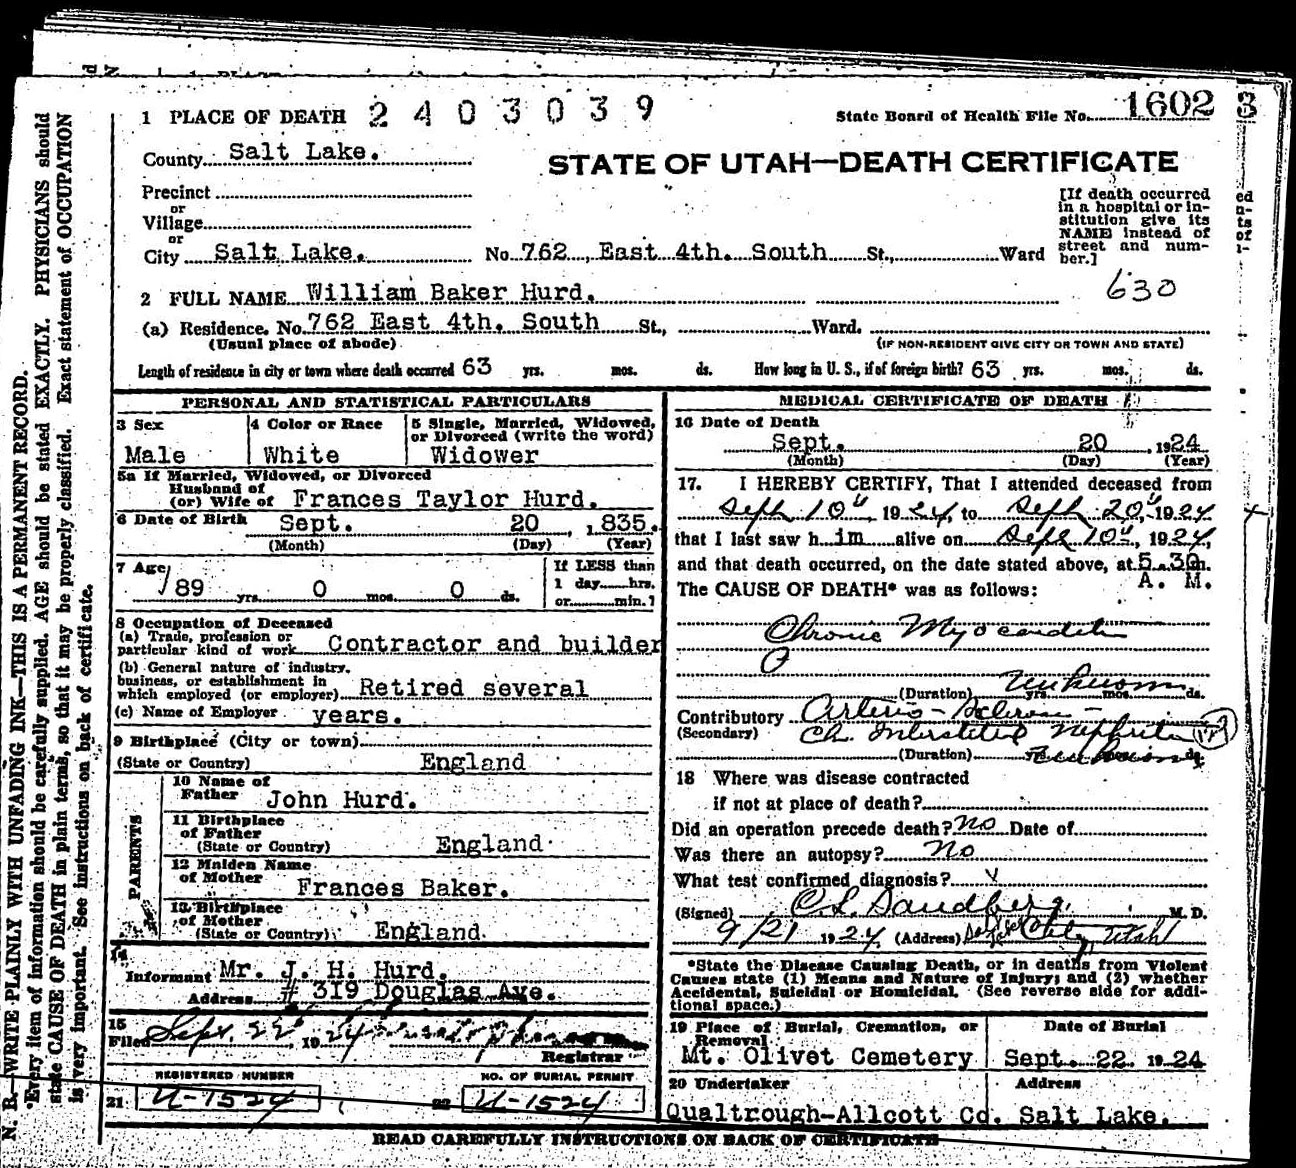 1 PLACE OF DEATH 2403039
State Board of Health File No. 1602 3
County Salt Lake.
STATE OF UTAH—DEATH CERTIFICATE
Precinct
or
Village
or
City Salt Lake. No. 762 East 4th. South St., Ward
[If death occurred
in a hospital or in-
stitution give its
NAME instead of
street and num-
ber.]
2 FULL NAME William Baker Hurd.
630
(a) Residence. No. 762 East 4th. South St., Ward.
(Usual place of abode) (IF NON-RESIDENT GIVE CITY OR TOWN AND STATE)
Length of residence in city or town where death occurred 63 yrs. mos. ds. How long in U. S., if of foreign birth? 63 yrs. mos. ds.
PERSONAL AND STATISTICAL PARTICULARS
3 Sex
Male
4 Color or Race
White
5 Single, Married, Widowed,
or Divorced (write the word)
Widower
5a If Married, Widowed, or Divorced
Husband of
(or) Wife of Frances Taylor Hurd.
6 Date of Birth Sept. 20, 1835.
(Month) (Day) (Year)
7 Age
89 yrs. 0 mos. 0 ds.
If LESS than
1 day hrs.
or min.?
8 Occupation of Deceased
(a) Trade, profession or
particular kind of work Contractor and builder
(b) General nature of industry,
business, or establishment in
which employed (or employer) Retired several
(c) Name of Employer years.
9 Birthplace (City or town)
(State or Country) England
PARENTS
10 Name of
Father John Hurd.
11 Birthplace
of Father
(State or Country) England
12 Maiden Name
of Mother Frances Baker.
13 Birthplace
of Mother
(State or Country) England
14
Informant Mr. J. H. Hurd.
Address # 319 Douglas Ave.
15
Filed Sept. 22 1924
Registrar
REGISTERED NUMBER
21 U-1524
NO. OF BURIAL PERMIT
22 U-1524
MEDICAL CERTIFICATE OF DEATH
16 Date of Death
Sept. 20, 1924
(Month) (Day) (Year)
17. I HEREBY CERTIFY, That I attended deceased from
Sept 10", 1924, to Sept 20", 1924
that I last saw h im alive on Sept 10", 1924,
and that death occurred, on the date stated above, at 5.30 m.
A. M.
The CAUSE OF DEATH* was as follows:
Chronic Myocarditis
(Duration) Unknown yrs. mos. ds.
Contributory Arterio-Sclerosis
(Secondary) Ch. Interstitial Nephritis
(Duration) Unknown ds.
18 Where was disease contracted
if not at place of death?
Did an operation precede death? No Date of
Was there an autopsy? No
What test confirmed diagnosis?
(Signed) C. L. Sandberg, M. D.
9/21 1924 (Address) Salt Lake City, Utah
*State the Disease Causing Death, or in deaths from Violent
Causes state (1) Means and Nature of Injury; and (2) whether
Accidental, Suicidal or Homicidal. (See reverse side for addi-
tional space.)
19 Place of Burial, Cremation, or
Removal
Mt. Olivet Cemetery
Date of Burial
Sept. 22 1924
20 Undertaker
Qualtrough-Allcott Co.
Address
Salt Lake.
READ CAREFULLY INSTRUCTIONS ON BACK OF CERTIFICATE
N. B.—WRITE PLAINLY WITH UNFADING INK—THIS IS A PERMANENT RECORD.
*Every item of information should be carefully supplied. AGE should be stated EXACTLY. PHYSICIANS should
state CAUSE OF DEATH in plain terms, so that it may be properly classified. Exact statement of OCCUPATION
is very important. See instructions on back of certificate.